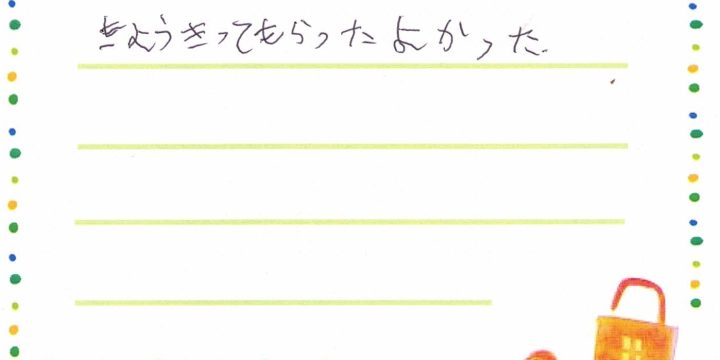 きょうきってもらったよかった.